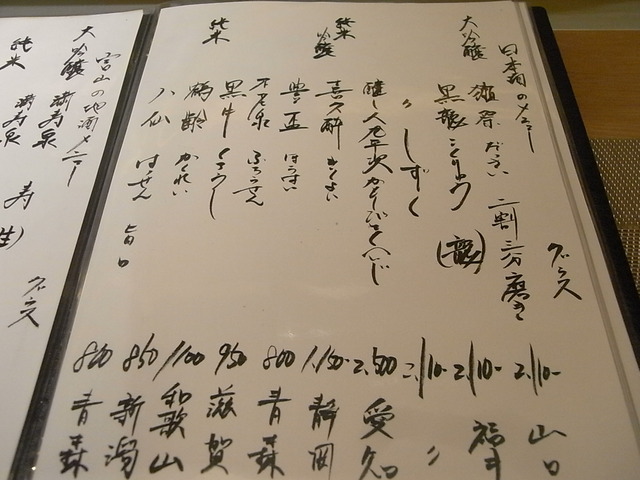 日本酒のメニュー
グラス
大吟醸 獺祭 だっさい 二割三分磨き 2,110- 山口
黒龍 こくりゅう (龍) 2,110- 福井
〃 しずく 2,110- 〃
醸し人九平次 かもしびとくへいじ 2,500 愛知
純米吟醸 喜久酔 きくよい 1,150- 静岡
豊盃 ほうはい 800 青森
不老泉 ふろうせん 950 滋賀
純米 黒牛 くろうし 1100 和歌山
鶴齢 かくれい 850 新潟
八仙 はっせん 旨口 青森
富山の地酒メニュー
グラス
大吟醸 満寿泉 寿
純米 満寿泉 生)